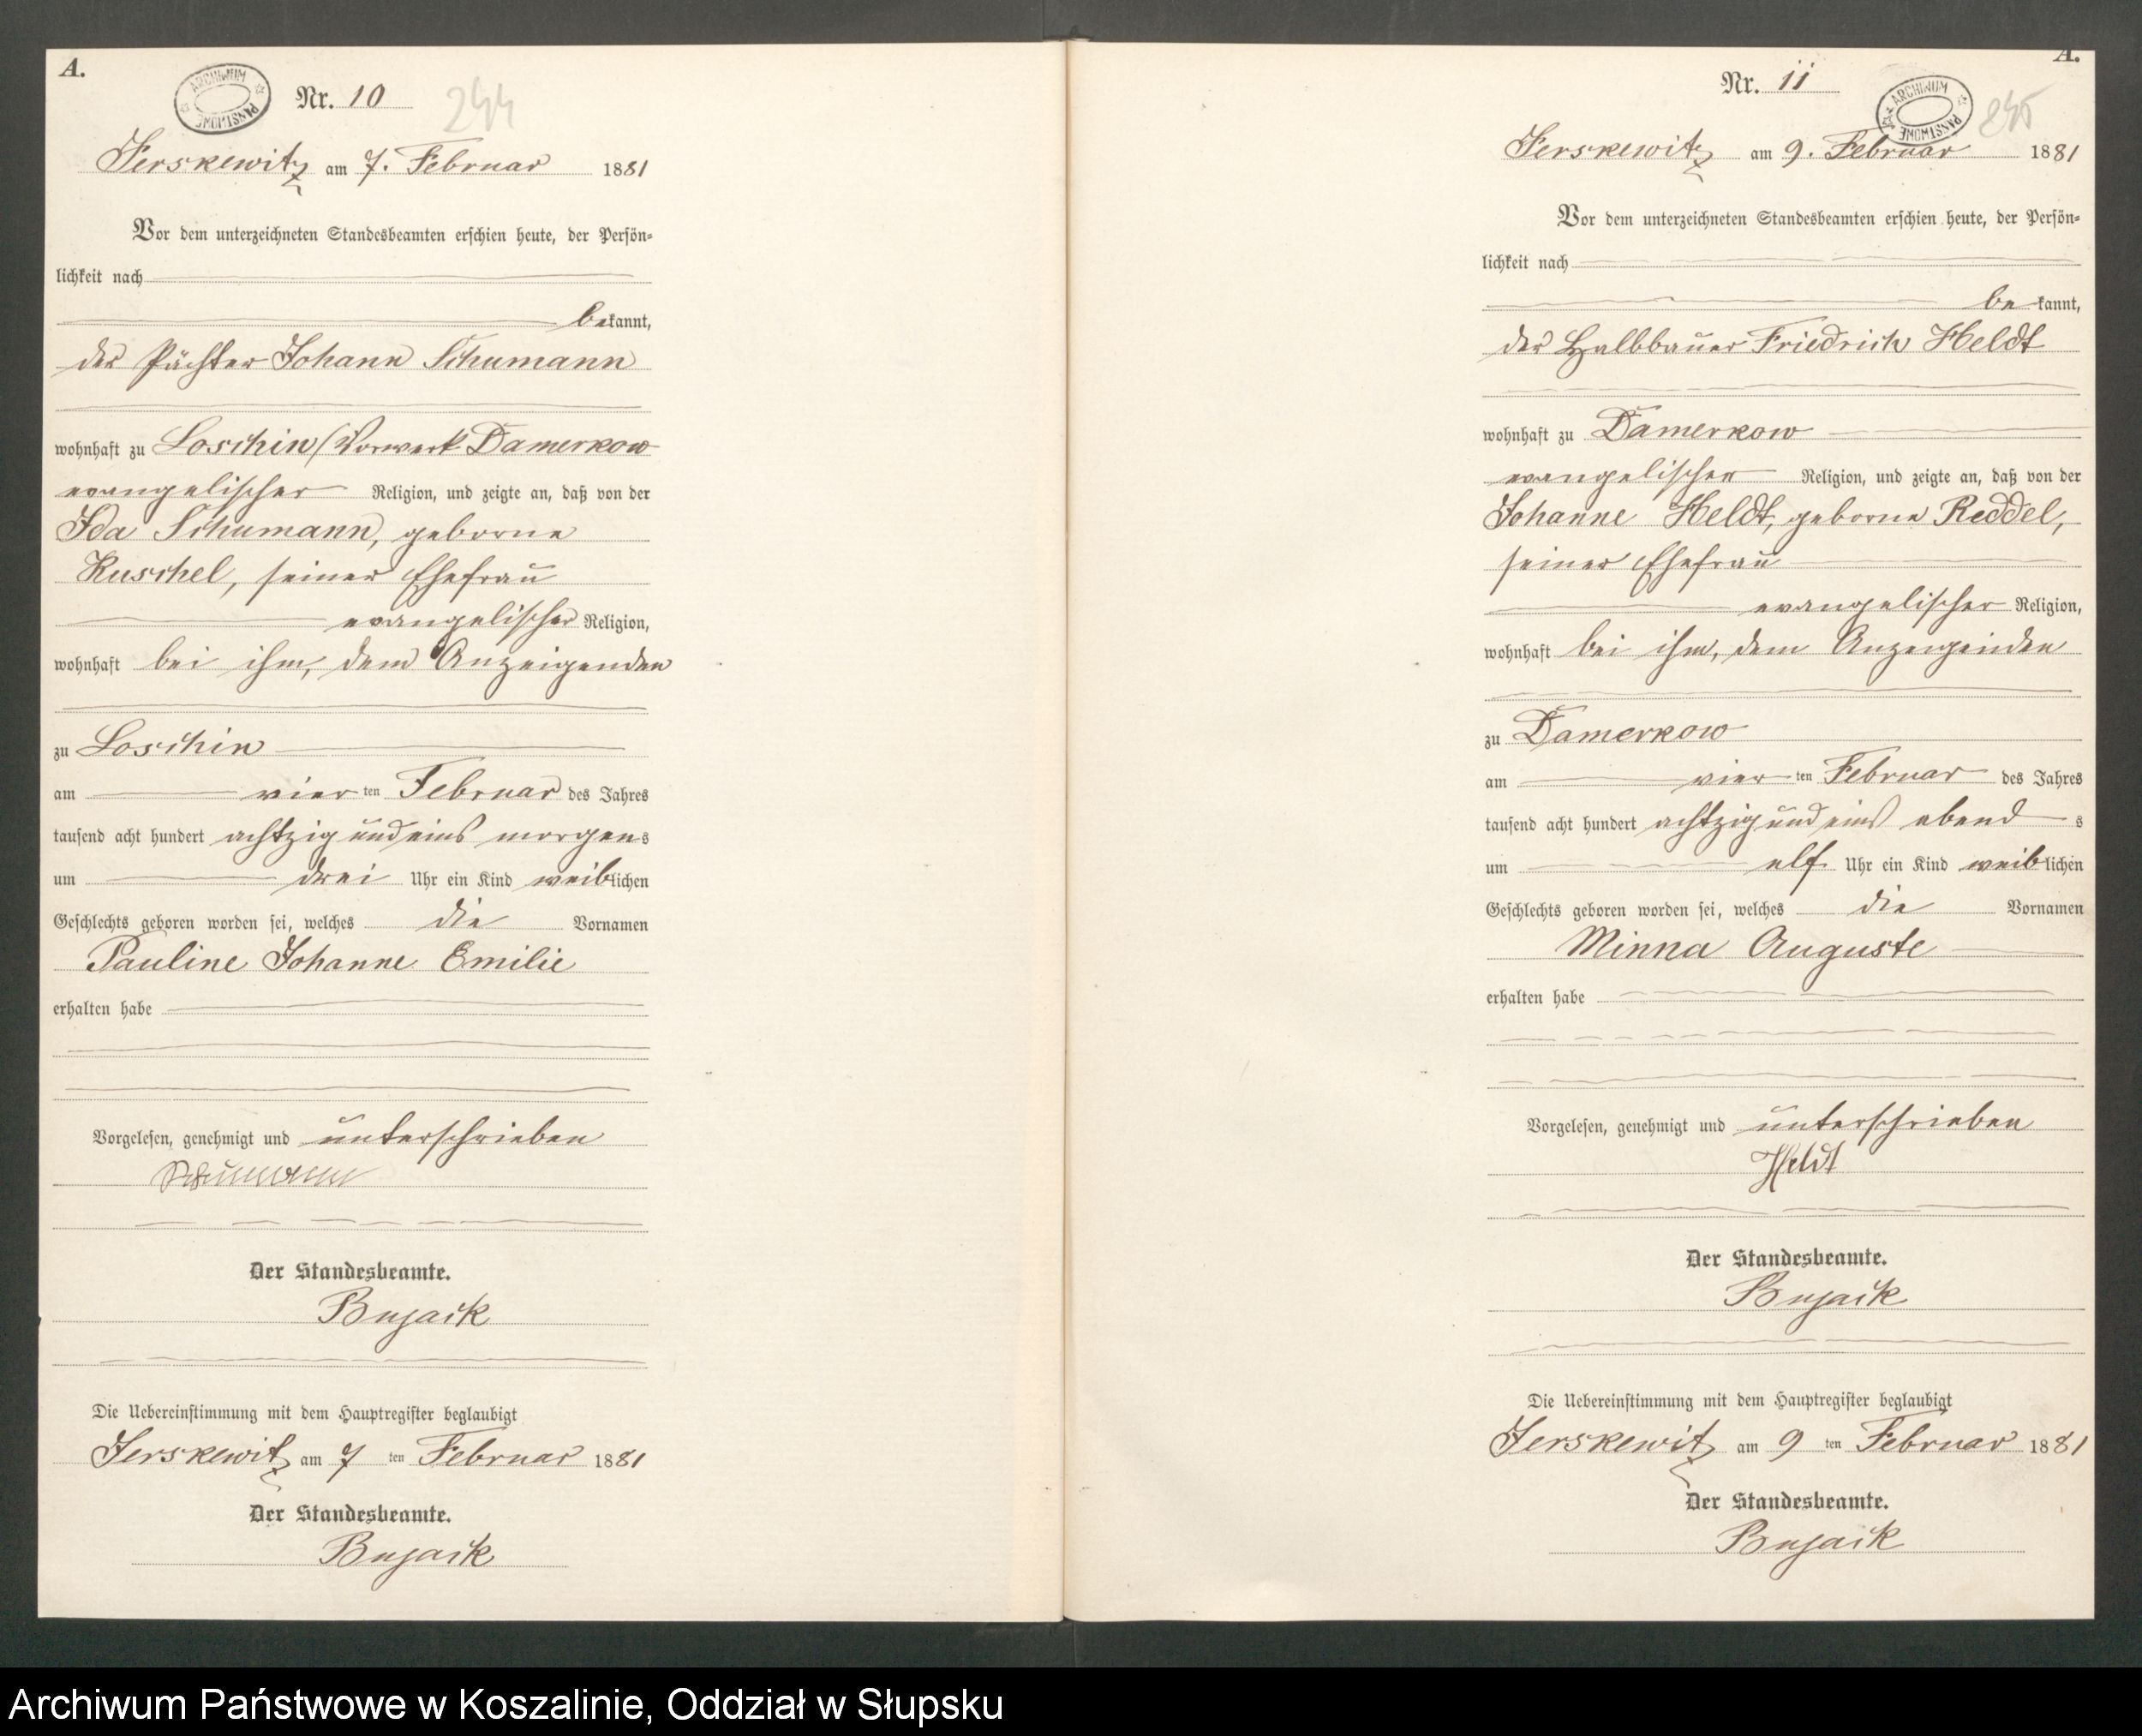 A.
ARCHIWUM PAŃSTWOWE
Nr. 10
244
Jerskewitz am 7. Februar 1881
Vor dem unterzeichneten Standesbeamten erschien heute, der Persön-
lichkeit nach
bekannt,
der Pächter Johann Schumann
wohnhaft zu Loschin/Vorwerk Damerkow
evangelischer Religion, und zeigte an, daß von der
Ida Schumann, geborne
Kuschel, seiner Ehefrau
evangelischer Religion,
wohnhaft bei ihm, dem Anzeigenden
zu Loschin
am vier ten Februar des Jahres
tausend acht hundert achtzig und eins morgens
um drei Uhr ein Kind weiblichen
Geschlechts geboren worden sei, welches die Vornamen
Pauline Johanne Emilie
erhalten habe
Vorgelesen, genehmigt und unterschrieben
Schumann
Der Standesbeamte.
Bujack
Die Uebereinstimmung mit dem Hauptregister beglaubigt
Jerskewitz am 7 ten Februar 1881
Der Standesbeamte.
Bujack
A.
Nr. 11
ARCHIWUM PAŃSTWOWE
245
Jerskewitz am 9. Februar 1881
Vor dem unterzeichneten Standesbeamten erschien heute, der Persön-
lichkeit nach
bekannt,
der Halbbauer Friedrich Heldt
wohnhaft zu Damerkow
evangelischer Religion, und zeigte an, daß von der
Johanne Heldt, geborne Reddel,
seiner Ehefrau
evangelischer Religion,
wohnhaft bei ihm, dem Anzeigenden
zu Damerkow
am vier ten Februar des Jahres
tausend acht hundert achtzig und eins abends
um elf Uhr ein Kind weiblichen
Geschlechts geboren worden sei, welches die Vornamen
Minna Auguste
erhalten habe
Vorgelesen, genehmigt und unterschrieben
Heldt
Der Standesbeamte.
Bujack
Die Uebereinstimmung mit dem Hauptregister beglaubigt
Jerskewitz am 9 ten Februar 1881
Der Standesbeamte.
Bujack
Archiwum Państwowe w Koszalinie, Oddział w Słupsku